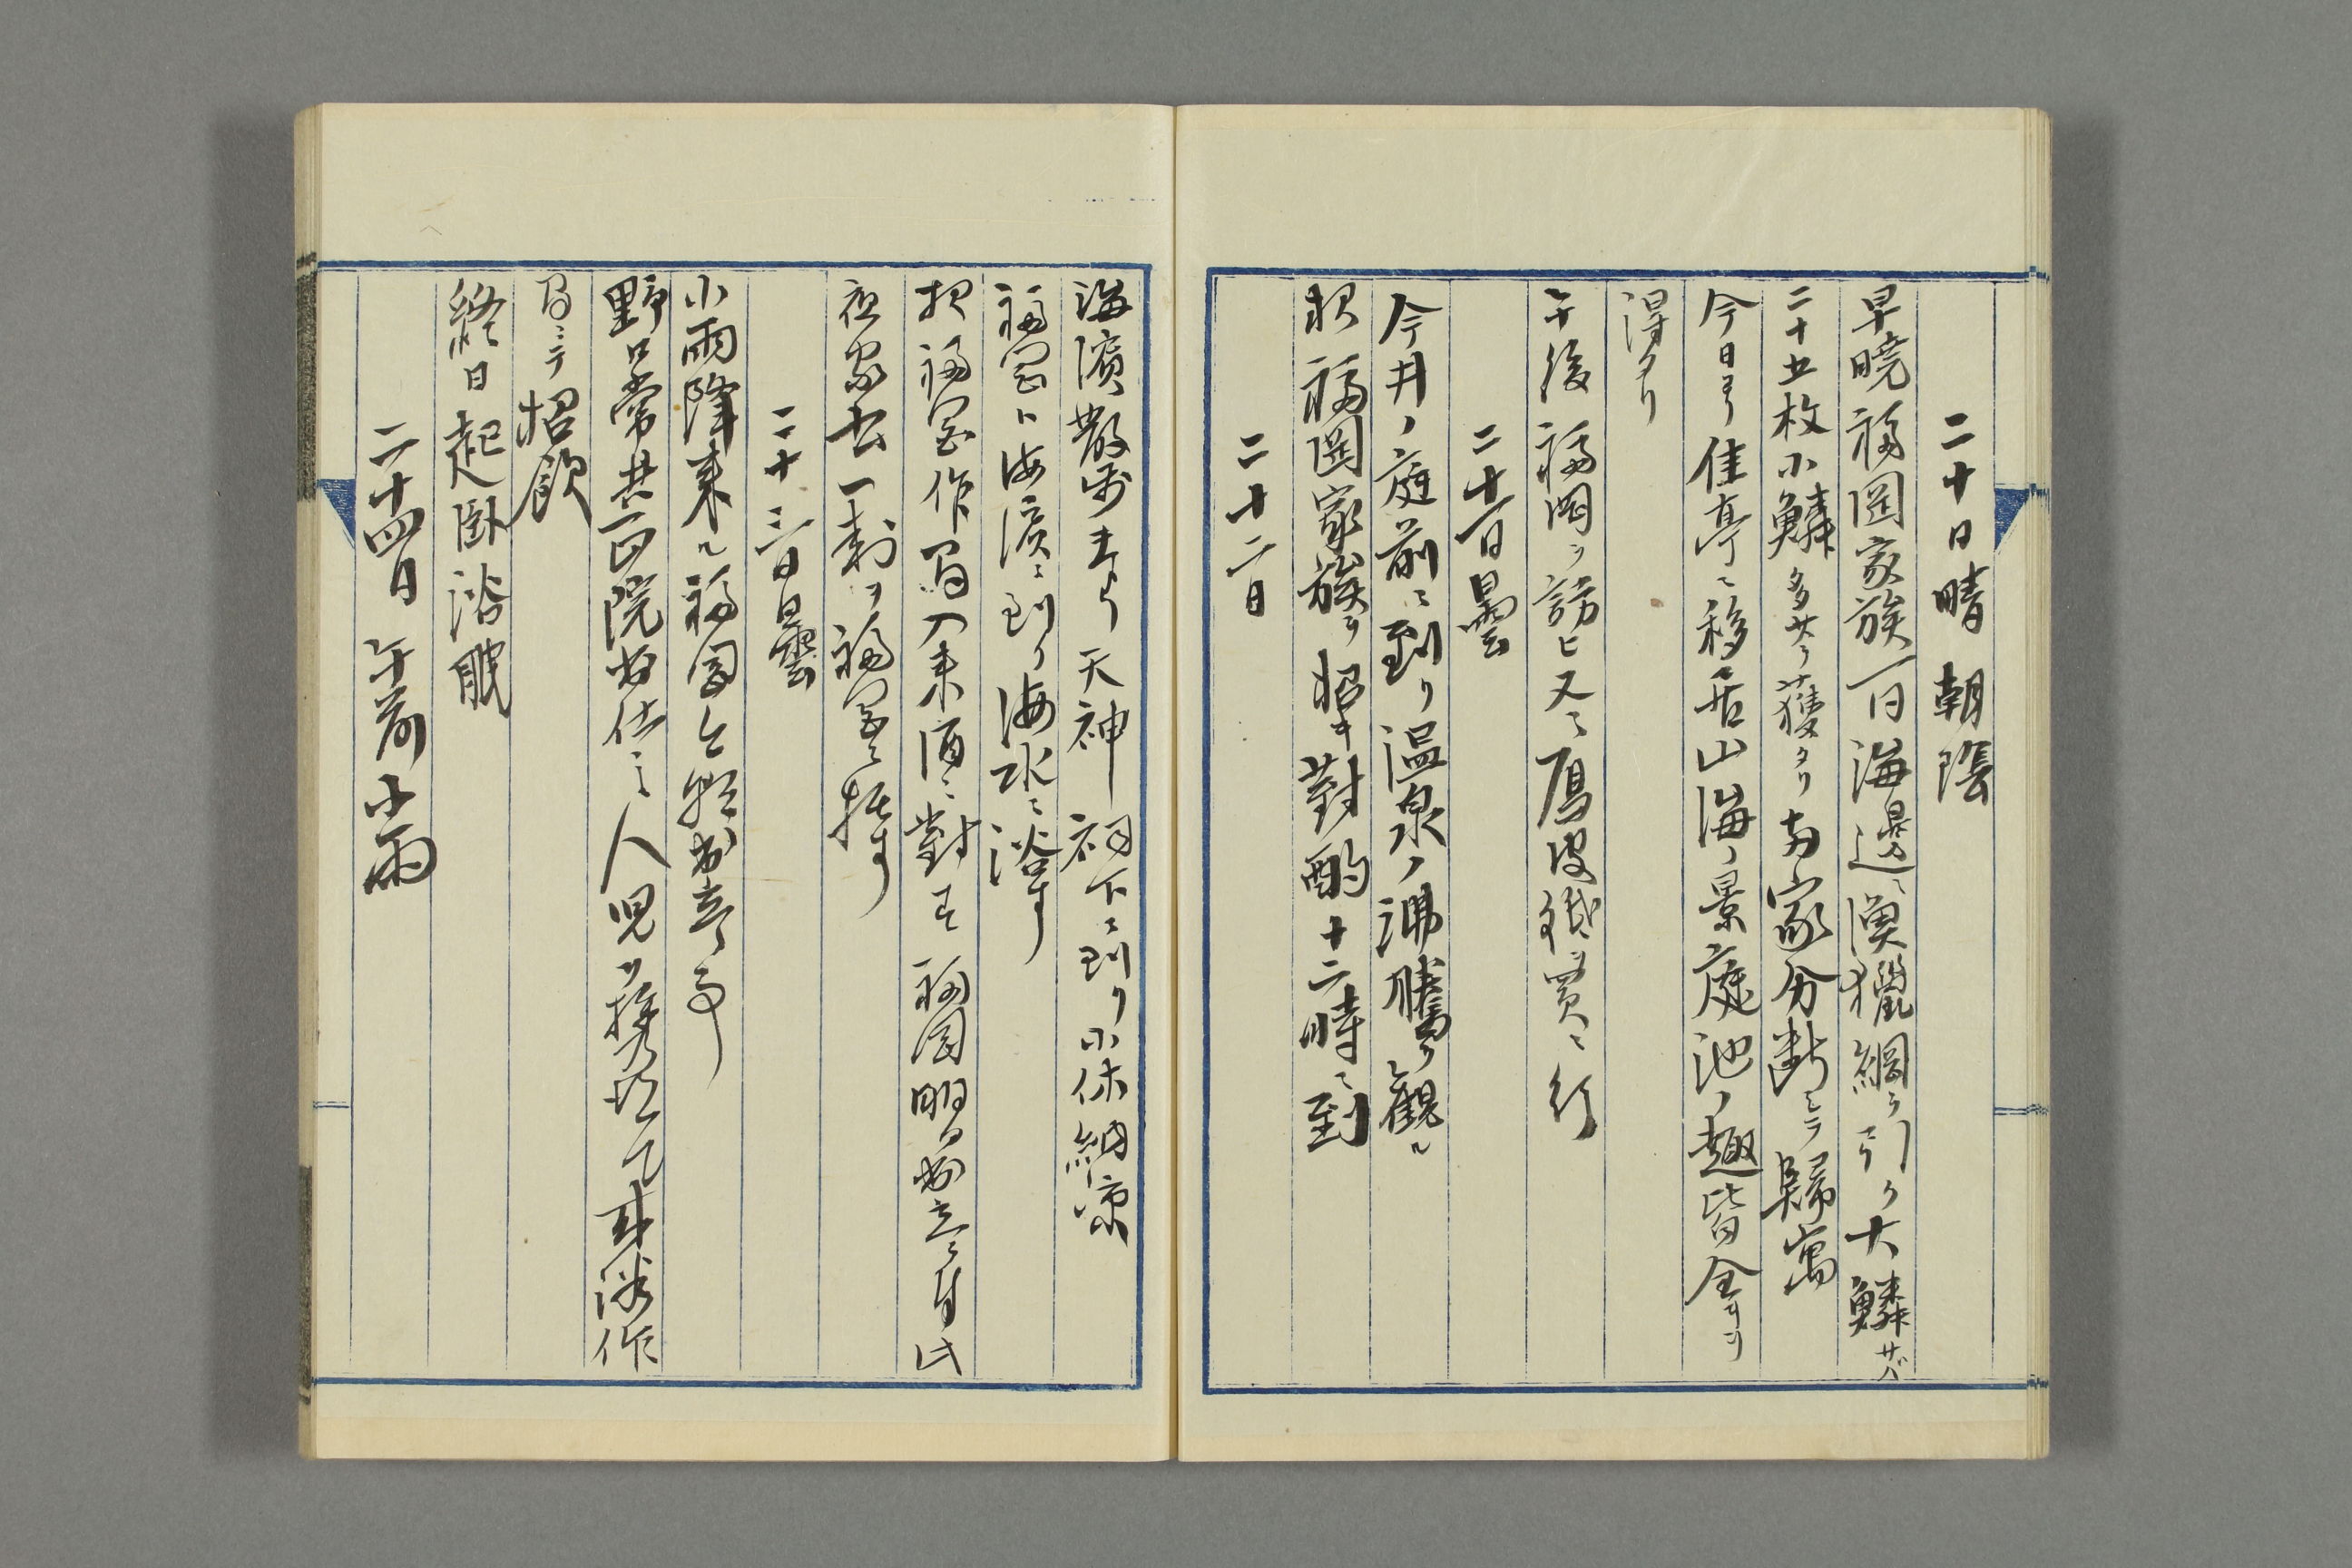 二十日晴 朝陰
早曉福岡家族一同海邊ニ漁獵網ヲ引ク大鱗サバ
二十五枚小鱗多サヲ獲タリ両家分断シテ歸寓
今日ヨリ佳亭ニ移居山海ノ景庭池ノ趣皆全キヲ
得タリ
午後福岡ヲ訪ヒ又雁皮紙ヲ買ニ行
二十一日曇
今井ノ庭前ニ到リ温泉ノ沸騰ヲ觀ル
夜福岡家族ヲ招キ對酌十二時ニ到
二十二日
海濱散歩ヨリ天神祠下ニ到リ小休納涼
福岡ト海濱ニ到リ海水ニ浴す
夜福岡作 入来酒ニ對す福岡明日出立ニ付此
夜家書一封ヲ福岡ニ托す
二十三日曇
小雨降来ル福岡今朝出立ノ事
野口常共 院 仕之人児ヲ携 来泊作
招飲
終日起臥浴眠
二十四日 午前小雨